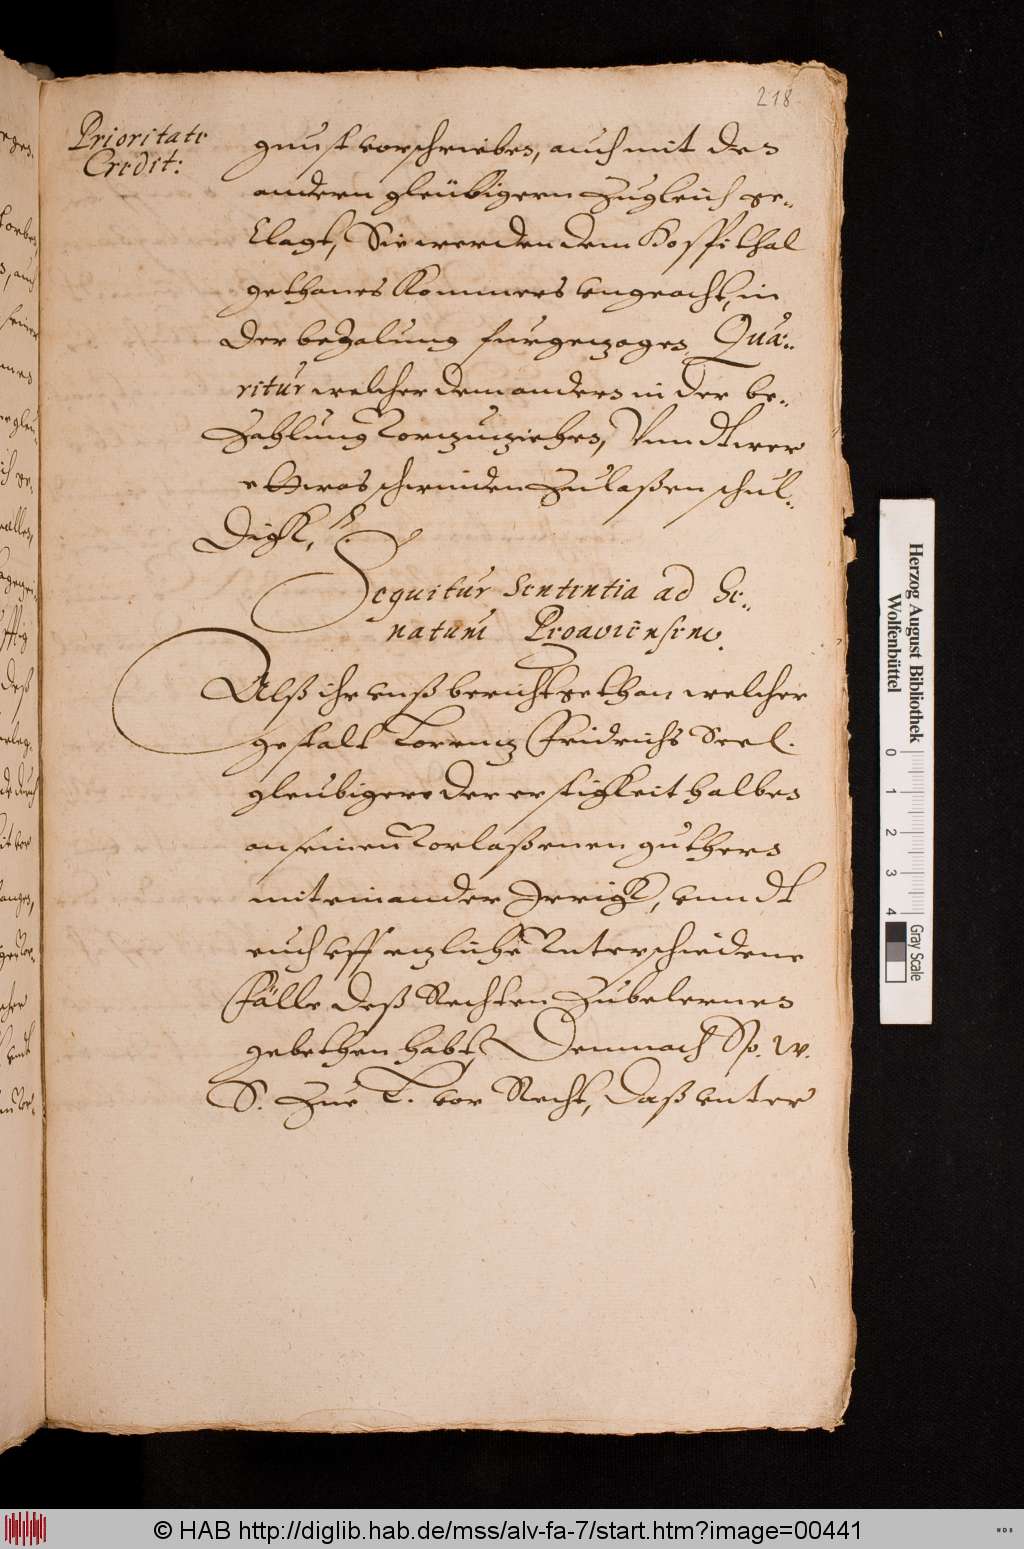 218
Prioritate
Credit:
gunst vorschrieben, auch mit den
andern gleübigern zugleich ge-
klagt, Sie werden dem Hospithal
gethanes Kommers vngeacht, in
der bezalung furgenzogen, Quæ-
ritur welcher dem andern in der be-
Zahlung vorzuziehen, Vnndt wer
ettwas schwinden zulaßen schul-
digk,
Sequitur Sententia ad Se-
natum
Alß ihr vnß bericht gethan welcher
gestalt Lorenz Fridrichs Seel.
gleubigere der erstigkeit halben
an seinen vorlaßenen guthern
mit einander Irrigk, vnndt
euch vff etzliche Unterschiedene
Fälle deß Rechten zubelernen
gebethen habt, Demnach Sp. w.
S. zue L. vor Recht, daß vnter
Herzog August Bibliothek
Wolfenbüttel
0 1 2 3 4
Gray Scale
© HAB http://diglib.hab.de/mss/alv-fa-7/start.htm?image=00441